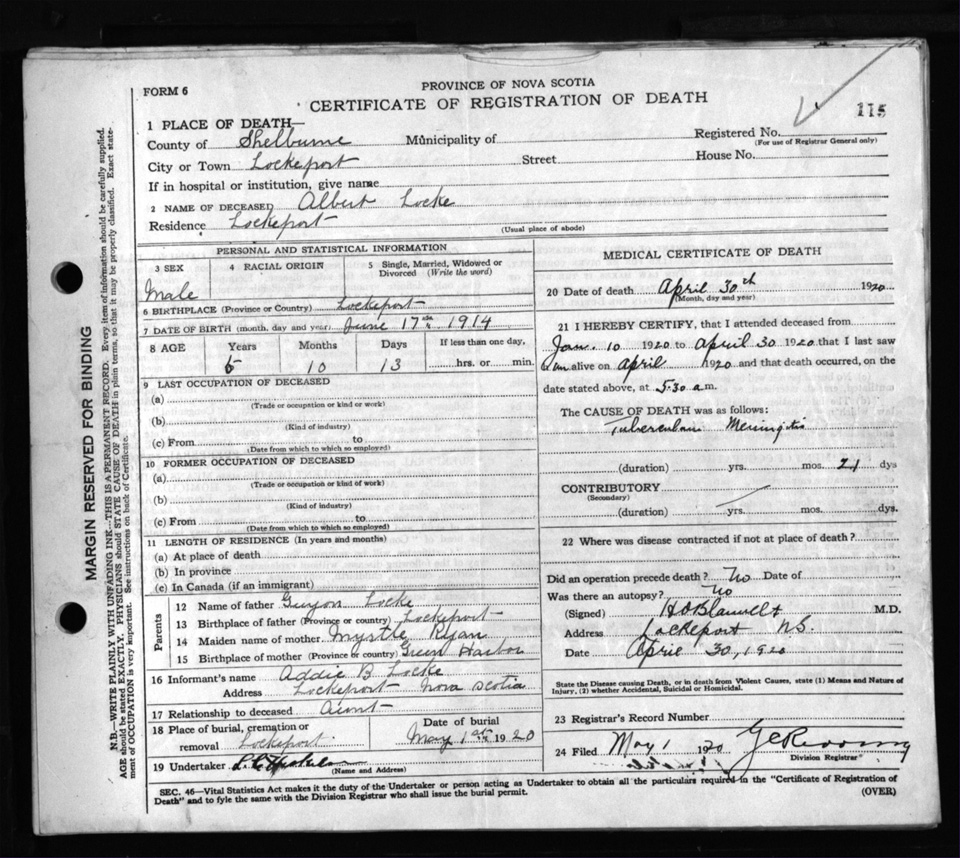 PROVINCE OF NOVA SCOTIA
FORM 6
CERTIFICATE OF REGISTRATION OF DEATH
115
1 PLACE OF DEATH—
County of Shelburne Municipality of Registered No.
(For use of Registrar General only)
City or Town Lockeport Street House No.
If in hospital or institution, give name
2 NAME OF DECEASED Albert Locke
Residence Lockeport
(Usual place of abode)
PERSONAL AND STATISTICAL INFORMATION
3 SEX 4 RACIAL ORIGIN 5 Single, Married, Widowed or
Divorced (Write the word)
Male
6 BIRTHPLACE (Province or Country) Lockeport
7 DATE OF BIRTH (month, day and year) June 17th 1914
8 AGE Years Months Days If less than one day,
5 10 13 hrs. or min.
9 LAST OCCUPATION OF DECEASED
(a)
(Trade or occupation or kind or work)
(b)
(Kind of industry)
(c) From to
(Date from which to which so employed)
10 FORMER OCCUPATION OF DECEASED
(a)
(Trade or occupation or kind of work)
(b)
(Kind of industry)
(c) From to
(Date from which to which so employed)
11 LENGTH OF RESIDENCE (In years and months)
(a) At place of death
(b) In province
(c) In Canada (if an immigrant)
Parents
12 Name of father Guyon Locke
13 Birthplace of father (Province or country) Lockeport
14 Maiden name of mother Myrtle Ryan
15 Birthplace of mother (Province or country) Green Harbor
16 Informant's name Addie B Locke
Address Lockeport Nova Scotia
17 Relationship to deceased Aunt
18 Place of burial, cremation or Date of burial
removal Lockeport May 1st 1920
19 Undertaker
(Name and Address)
MEDICAL CERTIFICATE OF DEATH
20 Date of death April 30th 1920
(Month, day and year)
21 I HEREBY CERTIFY, that I attended deceased from
Jan. 10 1920 to April 30 1920 that I last saw
him alive on April 1920 and that death occurred, on the
date stated above, at 5.30 a.m.
The CAUSE OF DEATH was as follows:
Tubercular Meningitis
(duration) yrs. mos. 21 dys
CONTRIBUTORY
(Secondary)
(duration) yrs. mos. dys.
22 Where was disease contracted if not at place of death?
Did an operation precede death? No Date of
Was there an autopsy? No
(Signed) H O Blauvelt M.D.
Address Lockeport N.S.
Date April 30, 1920
State the Disease causing Death, or in death from Violent Causes, state (1) Means and Nature of
Injury, (2) whether Accidental, Suicidal or Homicidal.
23 Registrar's Record Number
24 Filed May 1 1920
Division Registrar
SEC. 46—Vital Statistics Act makes it the duty of the Undertaker or person acting as Undertaker to obtain all the particulars required in the "Certificate of Registration of
Death" and to fyle the same with the Division Registrar who shall issue the burial permit.
(OVER)
MARGIN RESERVED FOR BINDING
N.B.—WRITE PLAINLY WITH UNFADING INK—THIS IS A PERMANENT RECORD. Every item of information should be carefully supplied.
AGE should be stated EXACTLY. PHYSICIANS should STATE CAUSE OF DEATH in plain terms, so that it may be properly classified. Exact state-
ment of OCCUPATION is very important. See instructions on back of Certificate.